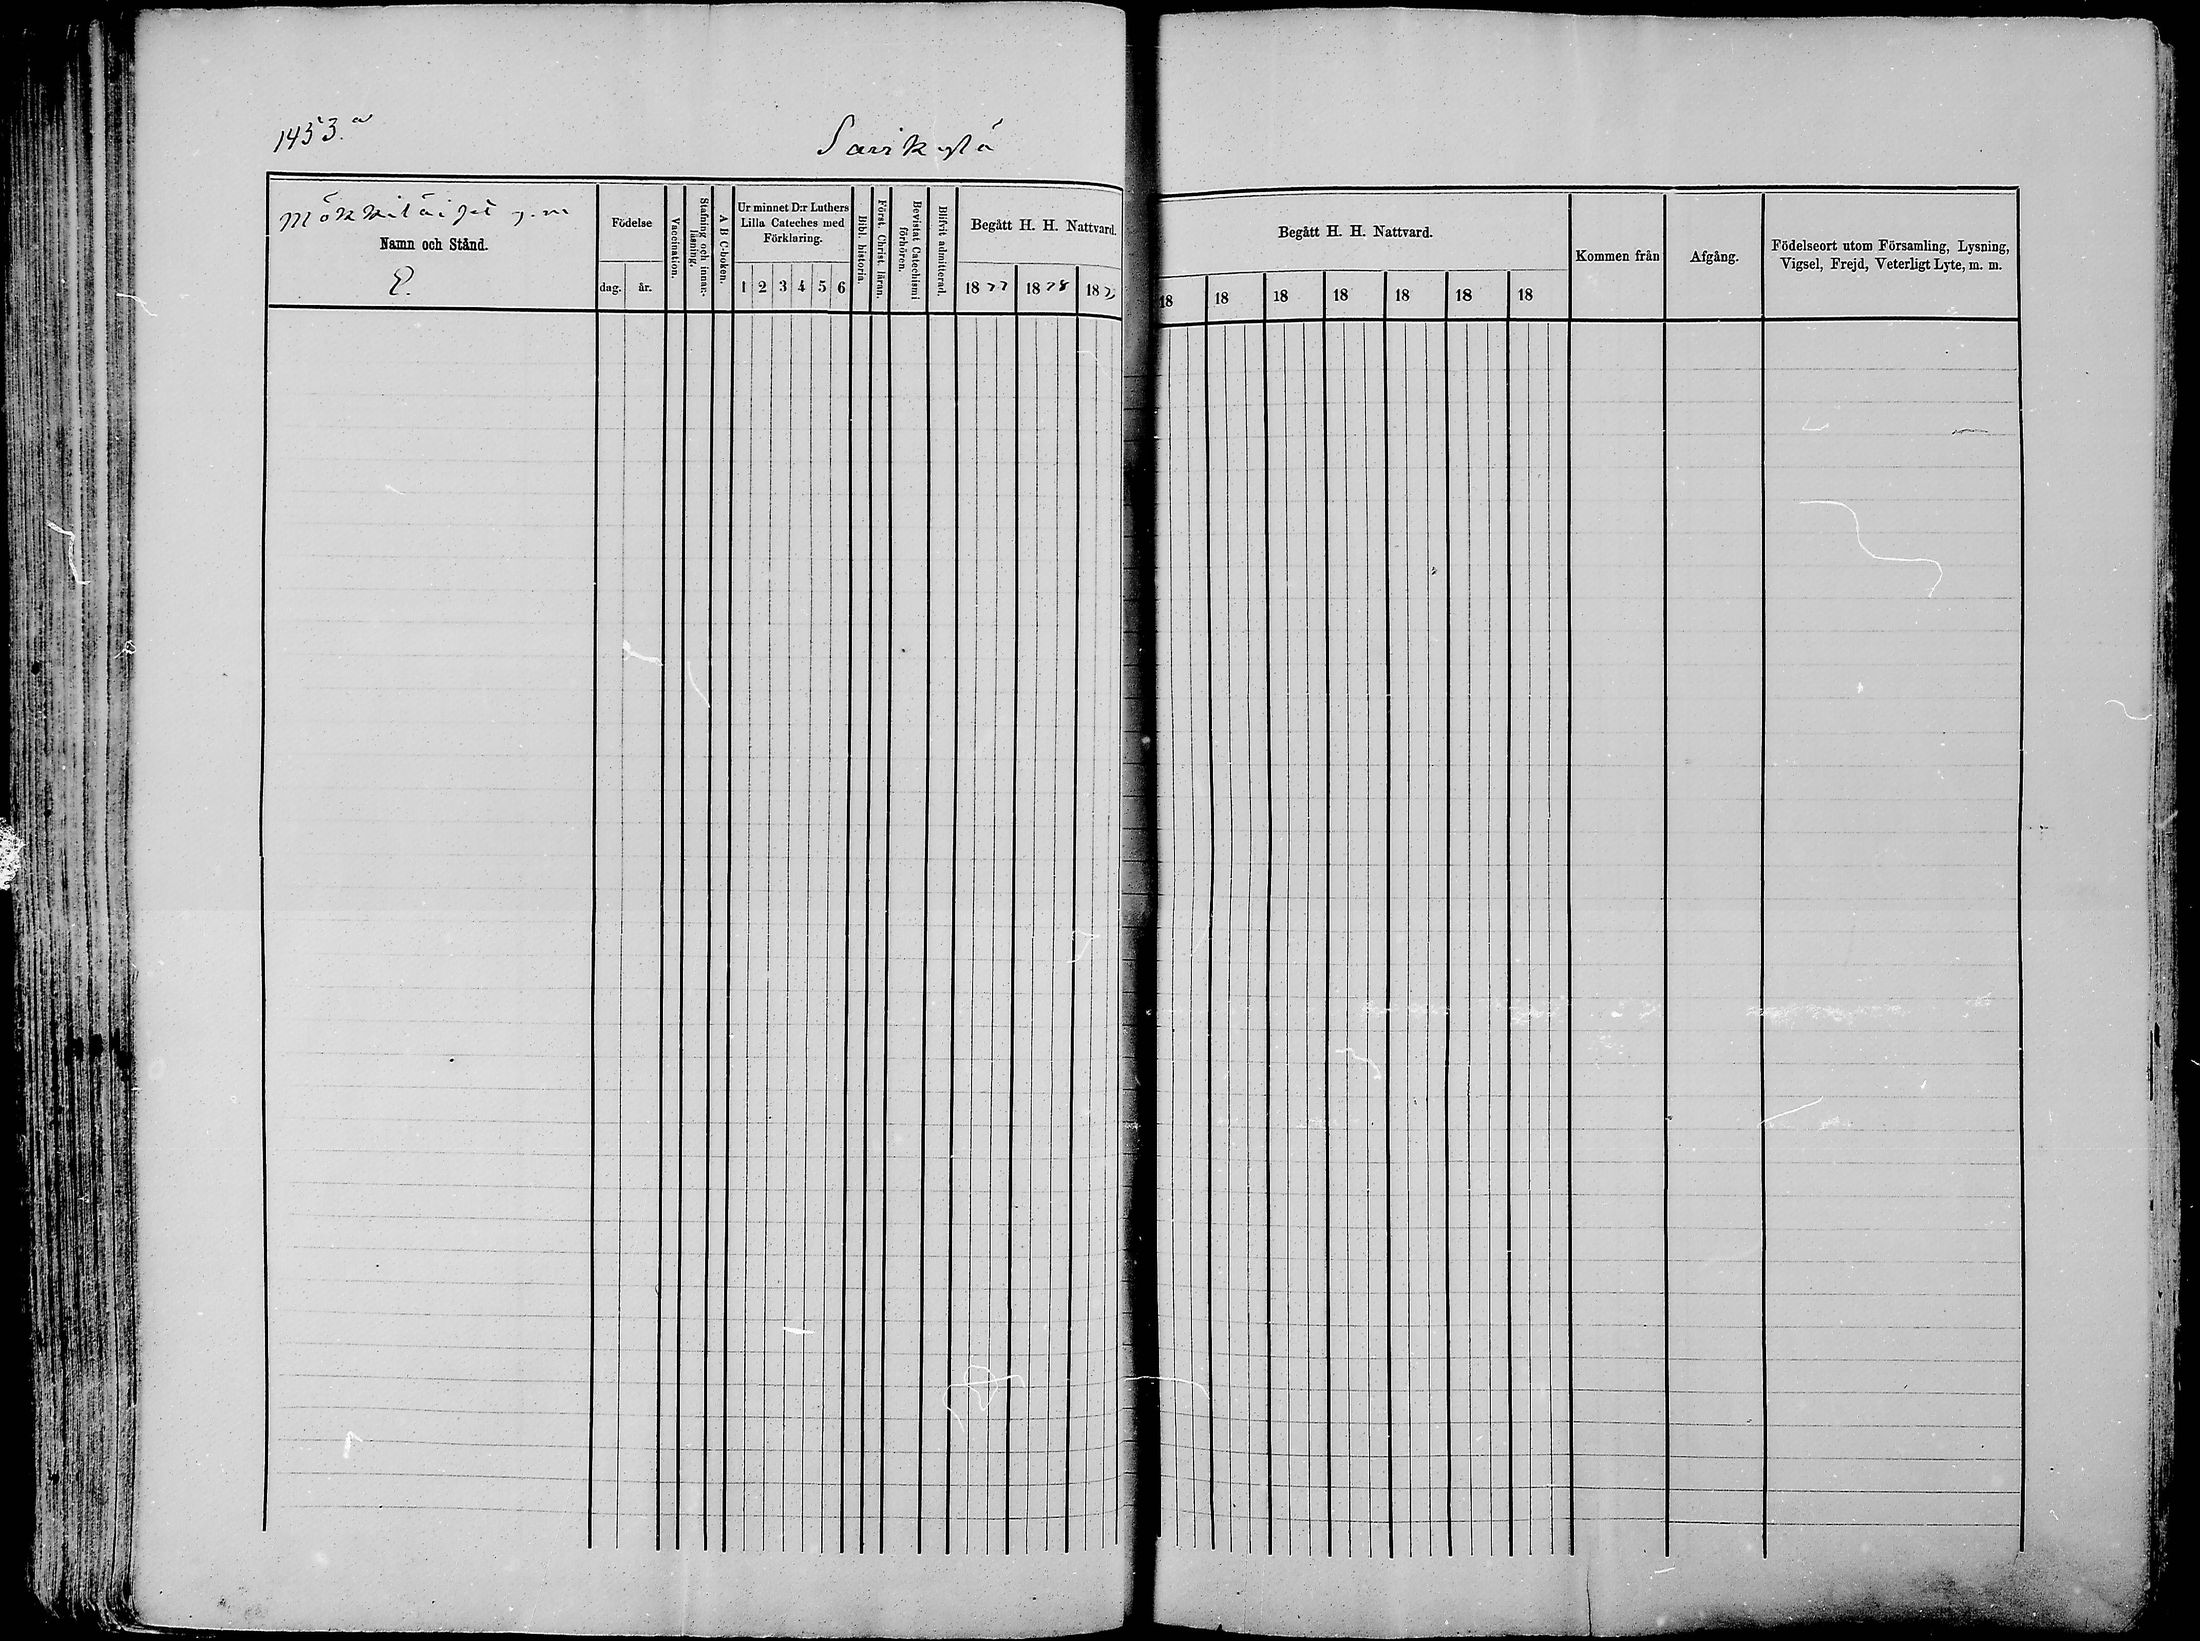 1453.a
Savikylä
Mökkiläiset y. m
Namn och Stånd.
E.
Födelse
dag. år.
Vaccination.
Stafning och innan-läsning.
A B C-boken.
Ur minnet D:r Luthers
Lilla Cateches med
Förklaring.
1 2 3 4 5 6
Bibl. historia.
Först. Christ. läran.
Bevistat Catechismi förhören.
Blifvit admitterad.
Begått H. H. Nattvard.
1877 1878 187
Begått H. H. Nattvard.
18 18 18 18 18 18 18
Kommen från
Afgång.
Födelseort utom Församling, Lysning,
Vigsel, Frejd, Veterligt Lyte, m. m.